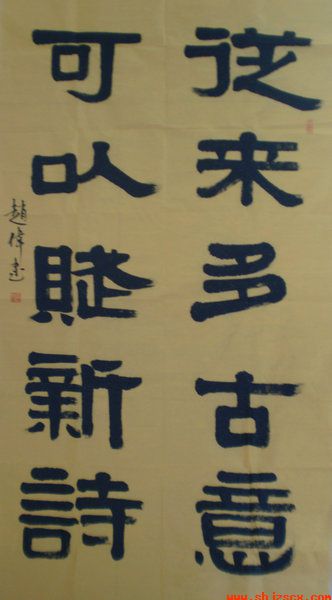 從来多古意
可以賦新詩
趙
www.shizscx.com